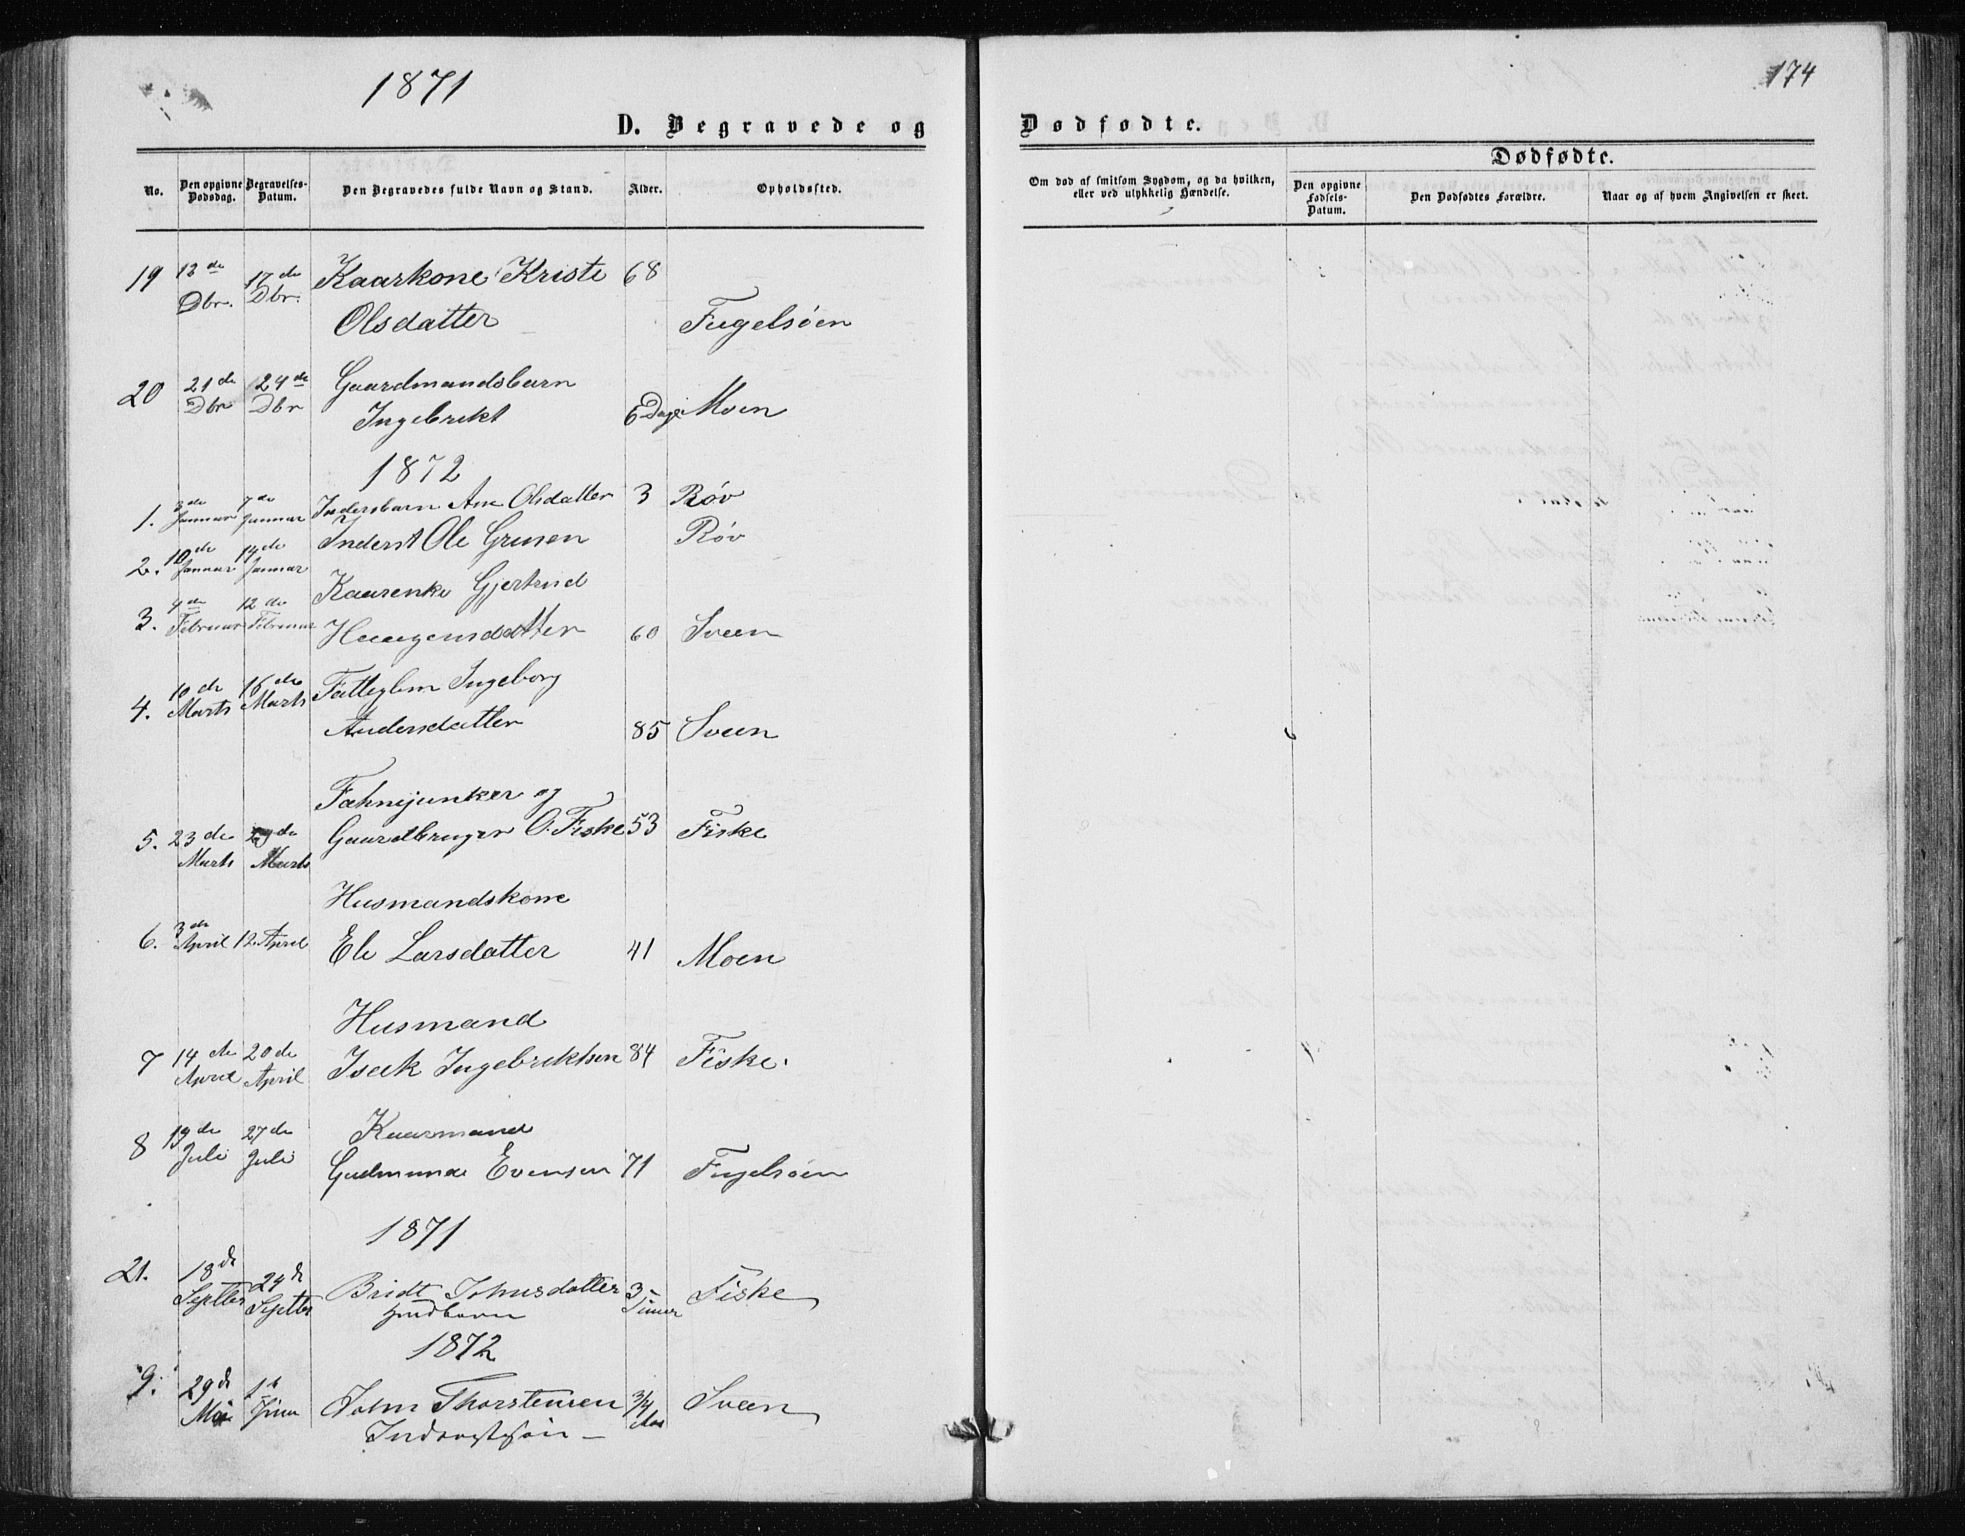 1871
D. Begravede og
No. Den opgivne Dødsdag. Begravelses-Datum. Den Begravedes fulde Navn og Stand. Alder. Opholdssted.
19 17de Kaarkone Kriste 68
Dbr. Dbr. Olsdatter Fugelsöen
20 21de 24de Gaardmandsbarn
Dbr Dbr Ingebrekt 6 Dage Moen
1872
1. 7de Januar Januar Inderstbarn Olsdatter 3 Røv
2. 10de Januar 14de Januar Inderst Ole Røv
3. 12de Kaarenke Gjertrud
Februar Februar Haagensdatter 60 Sveen
4. 10de Marts 16de Marts Ingeborg
Andersdatter 85 Sveen
Fahnejunker og
5. 23de Gaardbruger O. Fiske 53 Fiske
Marts Marts
Husmandskone
6. 3de April 12 April Eli Larsdatter 41 Moen
Husmand
7 14de April 20de April Isak Ingebrektsen 84 Fiske.
8 19de Juli 27de Juli Kaarmand
Gudmund Evensen 71 Fugelsöen
1871
21. 18de Septbr 24de Septbr Bridt Johnsdatter 3 Timer Fiske
1872
9. 29de Mai John Thorstensen 3/4 Aar Sveen
174
Dødfødte.
Dødfødte.
Om død af smitsom Sygdom, og da hvilken, eller ved ulykkelig Hændelse. Den opgivne Fødsels-Datum. Den Dødfødtes Forældre. Naar og af hvem Angivelsen er skeet.